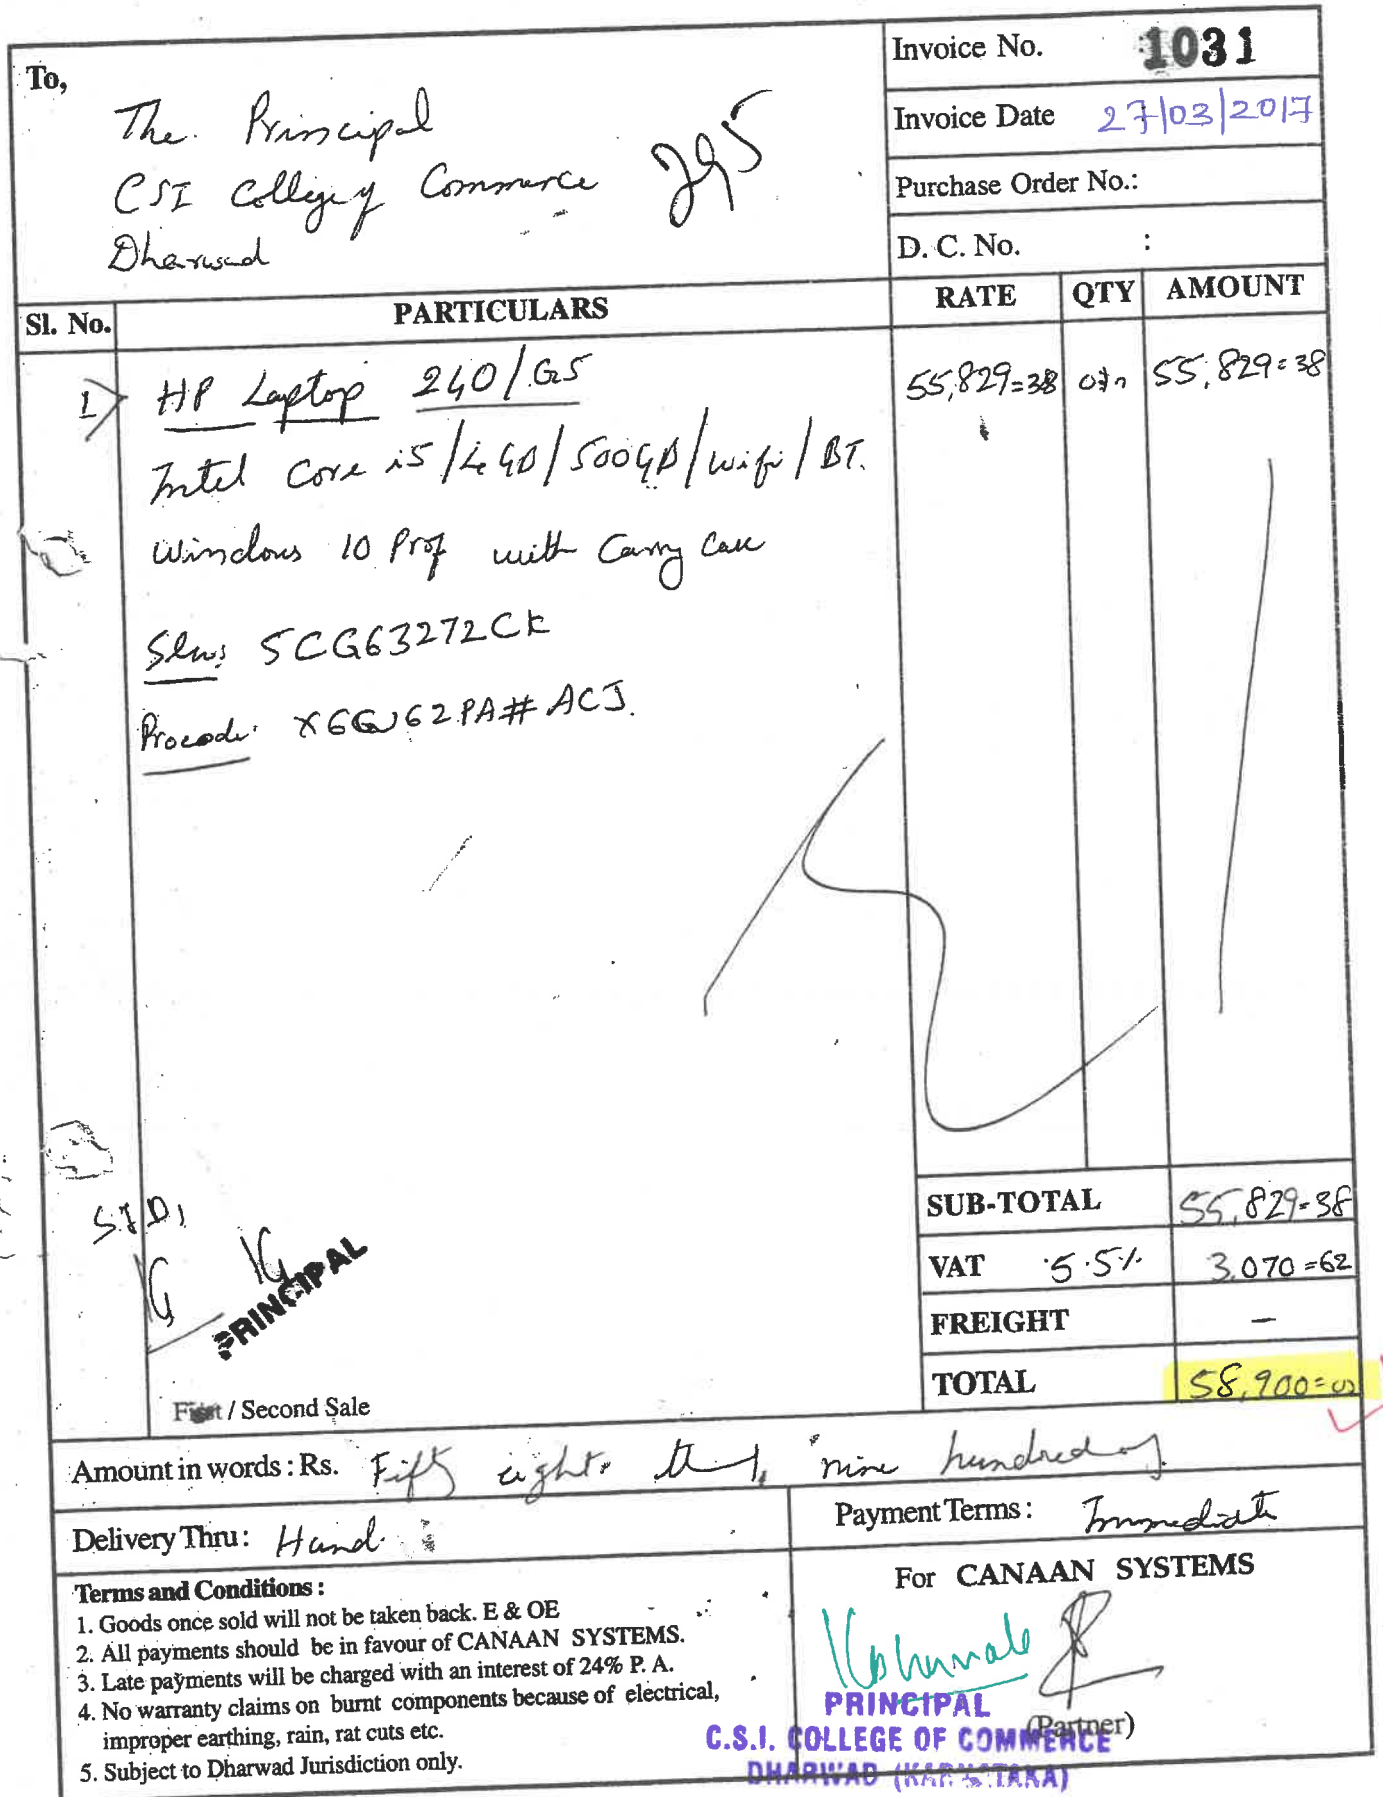 To,
The Principal
CSI College of Commerce
Dharwad
295
Invoice No. 1031
Invoice Date 27/03/2017
Purchase Order No.:
D. C. No. :
Sl. No. PARTICULARS RATE QTY AMOUNT
1) HP Laptop 240/G5 55,829=38 55,829=38
Intel Core i5/4GB/500GB/Wifi/BT.
Windows 10 Prof with Carry Case
5CG63272CK
Procode: X6W62PA#ACJ.
SUB-TOTAL 55,829=38
VAT 5.5% 3,070=62
FREIGHT —
TOTAL 58,900=00
PRINCIPAL
First / Second Sale
Amount in words : Rs. Fifty eight nine hundred
Delivery Thru : Hand
Payment Terms : Immediate
Terms and Conditions :
1. Goods once sold will not be taken back. E & OE
2. All payments should be in favour of CANAAN SYSTEMS.
3. Late payments will be charged with an interest of 24% P. A.
4. No warranty claims on burnt components because of electrical,
improper earthing, rain, rat cuts etc.
5. Subject to Dharwad Jurisdiction only.
For CANAAN SYSTEMS
(Partner)
PRINCIPAL
C.S.I. COLLEGE OF COMMERCE
DHARWAD (KARNATAKA)